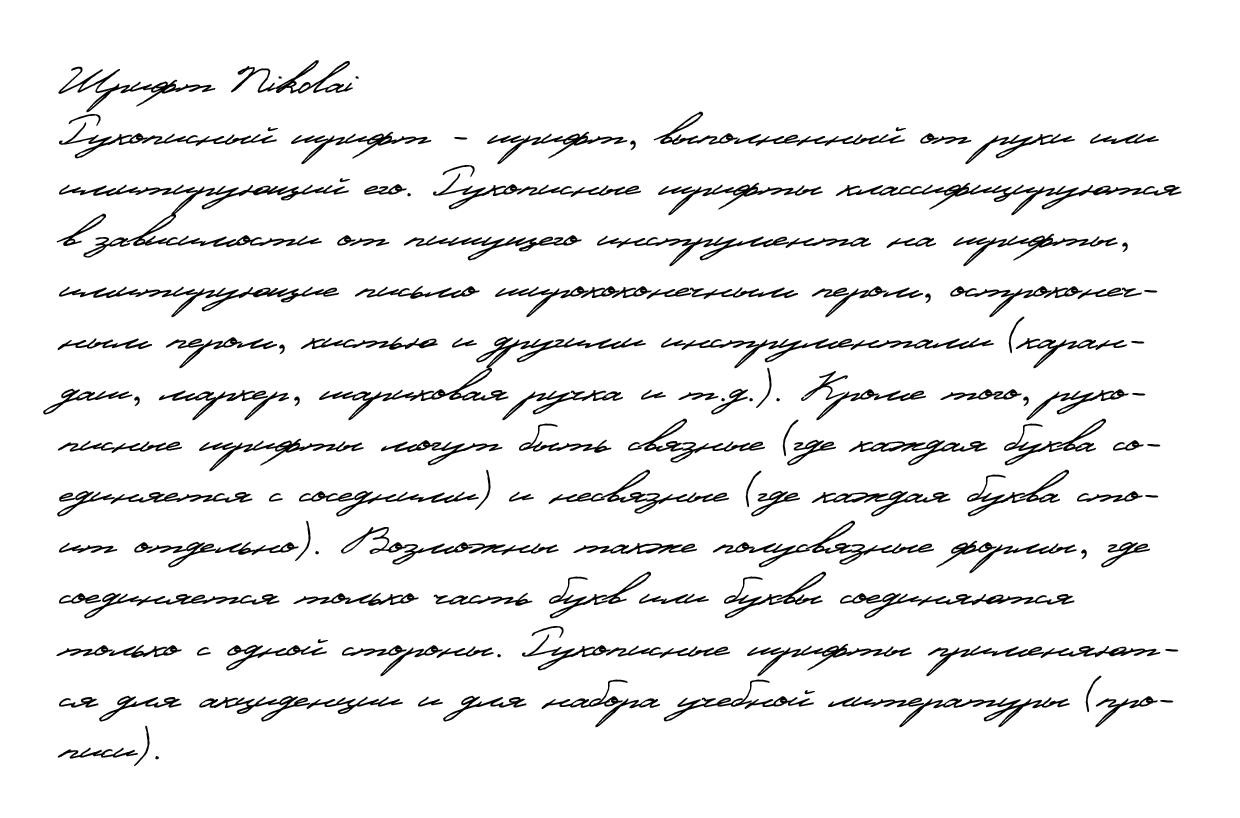 Шрифт Nikolai
Рукописный шрифт - шрифт, выполненный от руки или
имитирующий его. Рукописные шрифты классифицируются
в зависимости от пишущего инструмента на шрифты,
имитирующие письмо ширококонечным пером, остроконеч-
ным пером, кистью и другими инструментами (каран-
даш, маркер, шариковая ручка и т.д.). Кроме того, руко-
писные шрифты могут быть связные (где каждая буква со-
единяется с соседними) и несвязные (где каждая буква сто-
ит отдельно). Возможны также полусвязные формы, где
соединяется только часть букв или буквы соединяются
только с одной стороны. Рукописные шрифты применяют-
ся для акциденции и для набора учебной литературы (про-
писи).